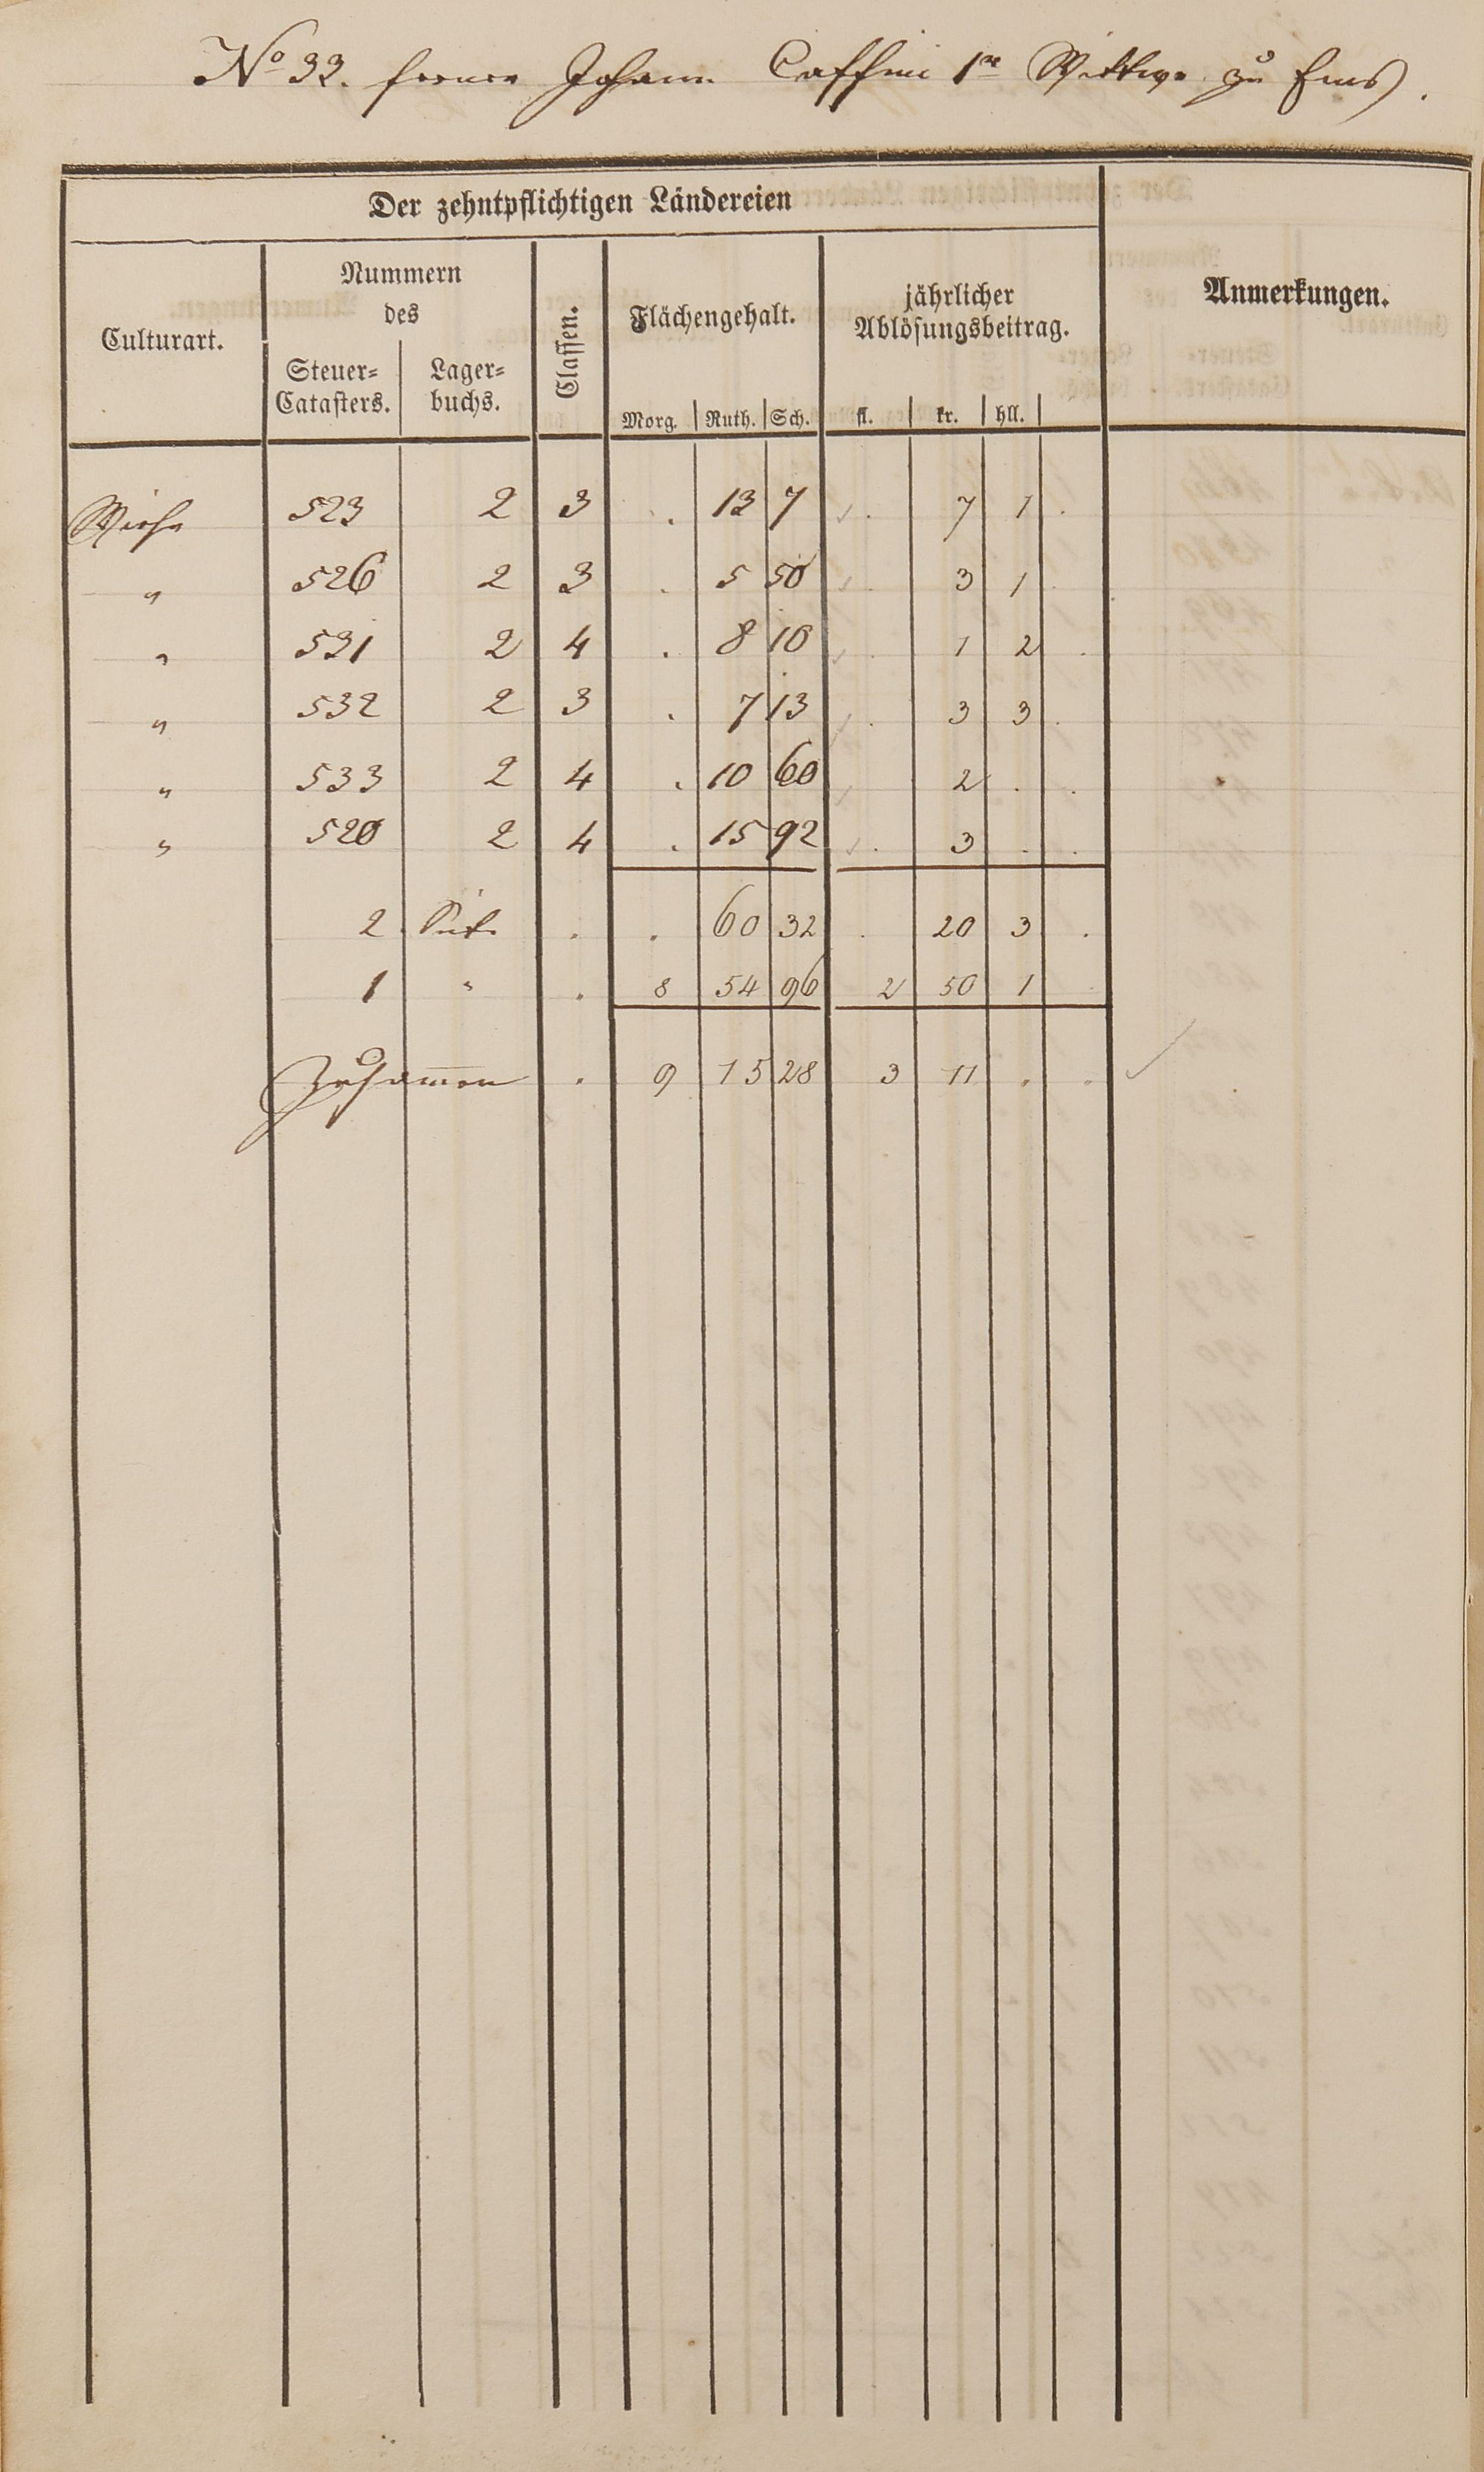 No 33. ferner Johann Caffini 1r Wittwe zu Ems.
Der zehntpflichtigen Ländereien
Culturart.
Nummern
des
Steuer-
Catasters.
Lager-
buchs.
Classen.
Flächengehalt.
Morg. Ruth. Sch.
jährlicher
Ablösungsbeitrag.
fl. kr. hll.
Anmerkungen.
Wiese 523 2 3 . 13 7 . 7 1 .
" 526 2 3 . 5 50 . 3 1 .
" 531 2 4 . 8 10 . 1 2 .
" 532 2 3 . 7 13 . 3 3 .
" 533 2 4 . 10 60 2 . .
" 520 2 4 . 15 92 . 3 . .
2 Seite . . 60 32 . 20 3 .
1 " . 8 54 96 2 50 1 .
Zusammen . 9 15 28 3 11 . .